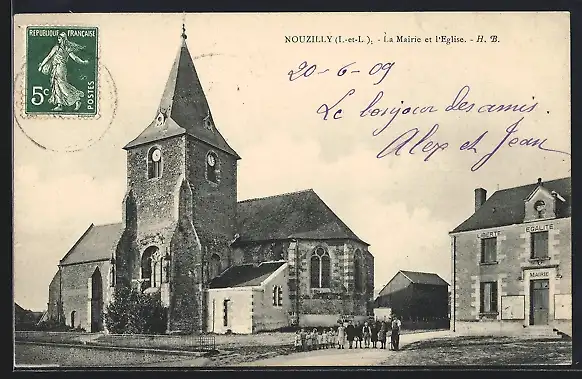 REPUBLIQUE FRANÇAISE
5c POSTES
NOUZILLY (I.-et-L.). - La Mairie et l'Eglise. - H. B.
20-6-09
Le bonjour des amis.
Alex et Jean
LIBERTE EGALITE
MAIRIE